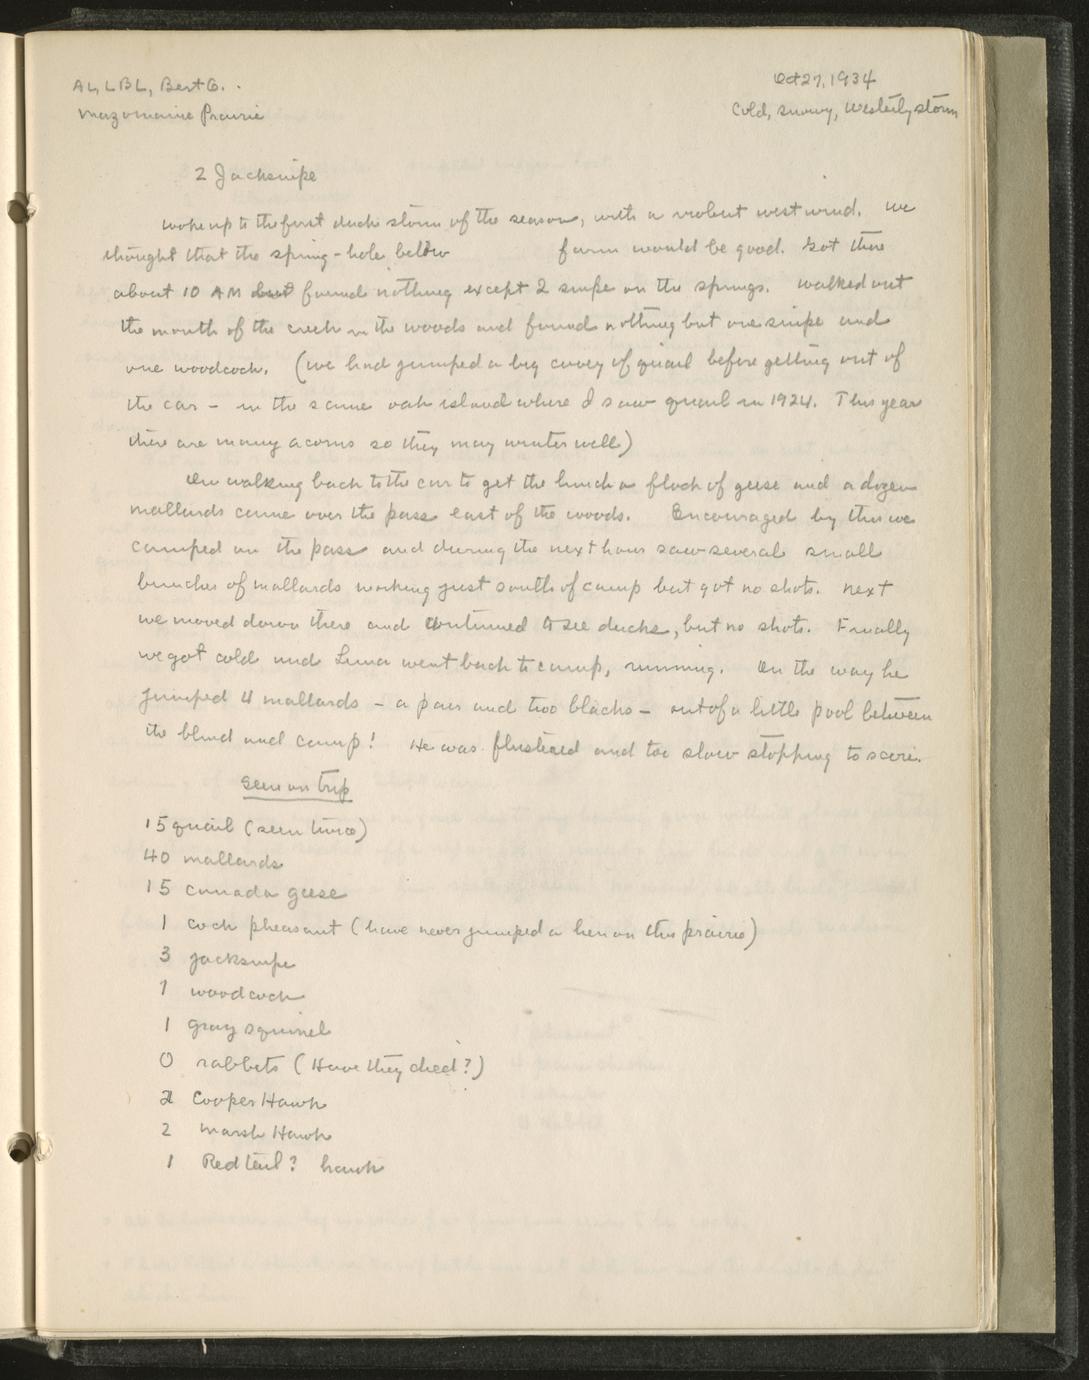 AL, LBL, Bert G.
Oct 27, 1934
Mazomanie Prairie
Cold, snowy, Westerly storm
2 Jacksnipe
Woke up to the first duck storm of the season, with a violent west wind. We
thought that the spring-hole below farm would be good. Got there
about 10 AM but found nothing except 2 snipe on the springs. Walked out
the mouth of the creek in the woods and found nothing but one snipe and
one woodcock. (We had jumped a big covey of quail before getting out of
the car - in the same oak island where I saw quail in 1924. This year
there are many acorns so they may winter well)
On walking back to the car to get the lunch a flock of geese and a dozen
mallards came over the pass east of the woods. Encouraged by this we
camped on the pass and during the next hour saw several small
bunches of mallards working just south of camp but got no shots. Next
we moved down there and continued to see ducks, but no shots. Finally
we got cold and Luna went back to camp, running. On the way he
jumped 4 mallards - a pair and two blacks - out of a little pool between
the blind and camp! He was flustered and too slow stopping to score.
Seen on trip
15 quail (seen twice)
40 mallards
15 Canada geese
1 cock pheasant (have never jumped a hen on this prairie)
3 jacksnipe
1 woodcock
1 gray squirrel
0 rabbits (Have they died?)
2 Cooper Hawk
2 Marsh Hawk
1 Redtail? hawk